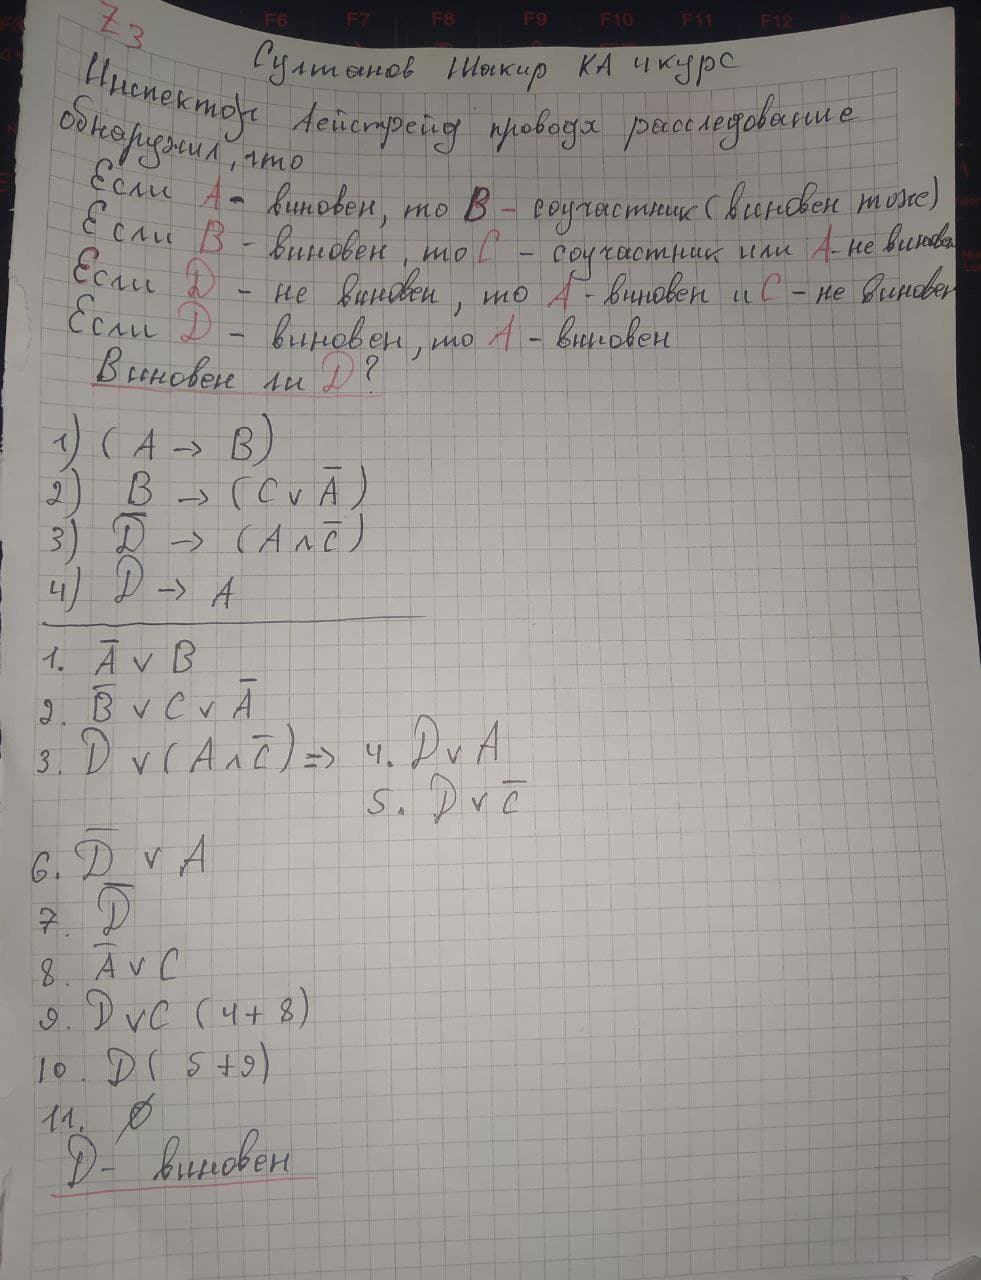 F6 F7 F8 F9 F10 F11 F12
Z3
Султанов Шакир КА 4 курс
Инспектор Лейстрейд проводя расследование
обнаружил, что
Если A - виновен, то B - соучастник (виновен тоже)
Если B - виновен, то C - соучастник или A - не виновен
Если D - не виновен, то A - виновен и C - не виновен
Если D - виновен, то A - виновен
Виновен ли D?
1) (A → B)
2) B → (C ∨ A̅)
3) D̅ → (A ∧ C̅)
4) D → A
1. A̅ ∨ B
2. B̅ ∨ C ∨ A̅
3. D ∨ (A ∧ C̅) => 4. D ∨ A
5. D ∨ C̅
6. D̅ ∨ A
7. D̅
8. A̅ ∨ C
9. D ∨ C (4+8)
10. D (5+9)
11. ∅
D - виновен